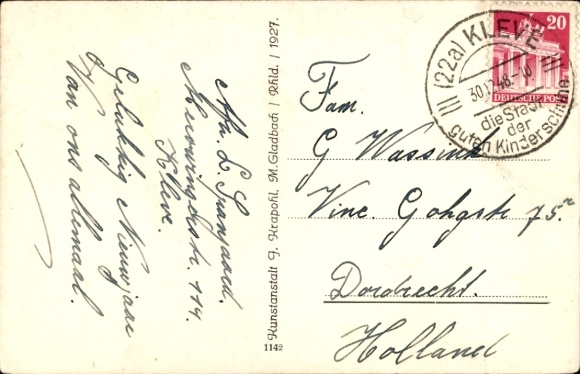 Gelukkig Nieuwjaar
Van ons allemaal.
Afz. L.
Kleve.
Kunstanstalt J. Krapohl, M.Gladbach / Rhld. / 1927.
1142
(22a) KLEVE
30.12.48.-10
die Stadt
der
guten Kinderschuhe
20
DEUTSCHE POST
Fam.
G Wassink
Vinc. Gohgstr 75
Dordrecht.
Holland